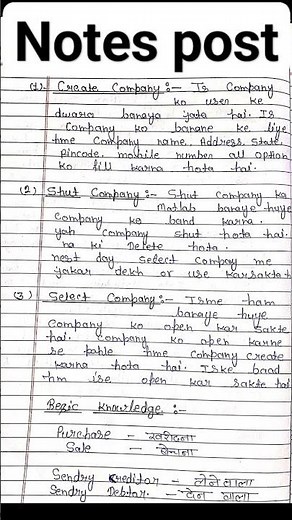 Notes post
(1) Create Company :- Is Company
ko user ke
dwara banaya jata hai. Is
Company ko banane ke liye
hme Company name, Address, State,
Pincode, mobile number all option
ko fill karna hota hai.
(2) Shut Company :- Shut company ka
Matlab banaye huye
Company ko band karna.
yah Company shut hota hai.
na ki Delete hota.
next day select compey me
jakar dekh or use karsakte h
(3) Select Company :- Isme ham
banaye huye
Company ko open kar sakte
hai. Company ko open karne
se pahle hme Company create
karna hota hai. Iske baad
hm ise open kar sakte hai
Begic knowledge :-
Purchase - खरीदना
Sale - बेचना
Sendry Creditor - लेने वाला
Sendry Debtor - देने वाला